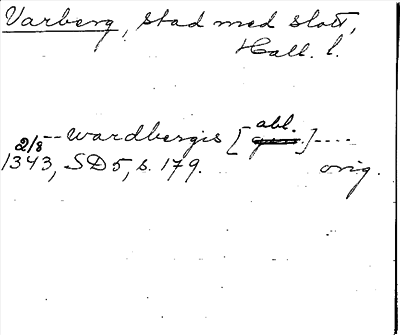 Varberg, stad med slott,
Hall. l.
abl.
-- wardbergis [gen.] ----
2/8
1343, SD 5, s. 179. orig.